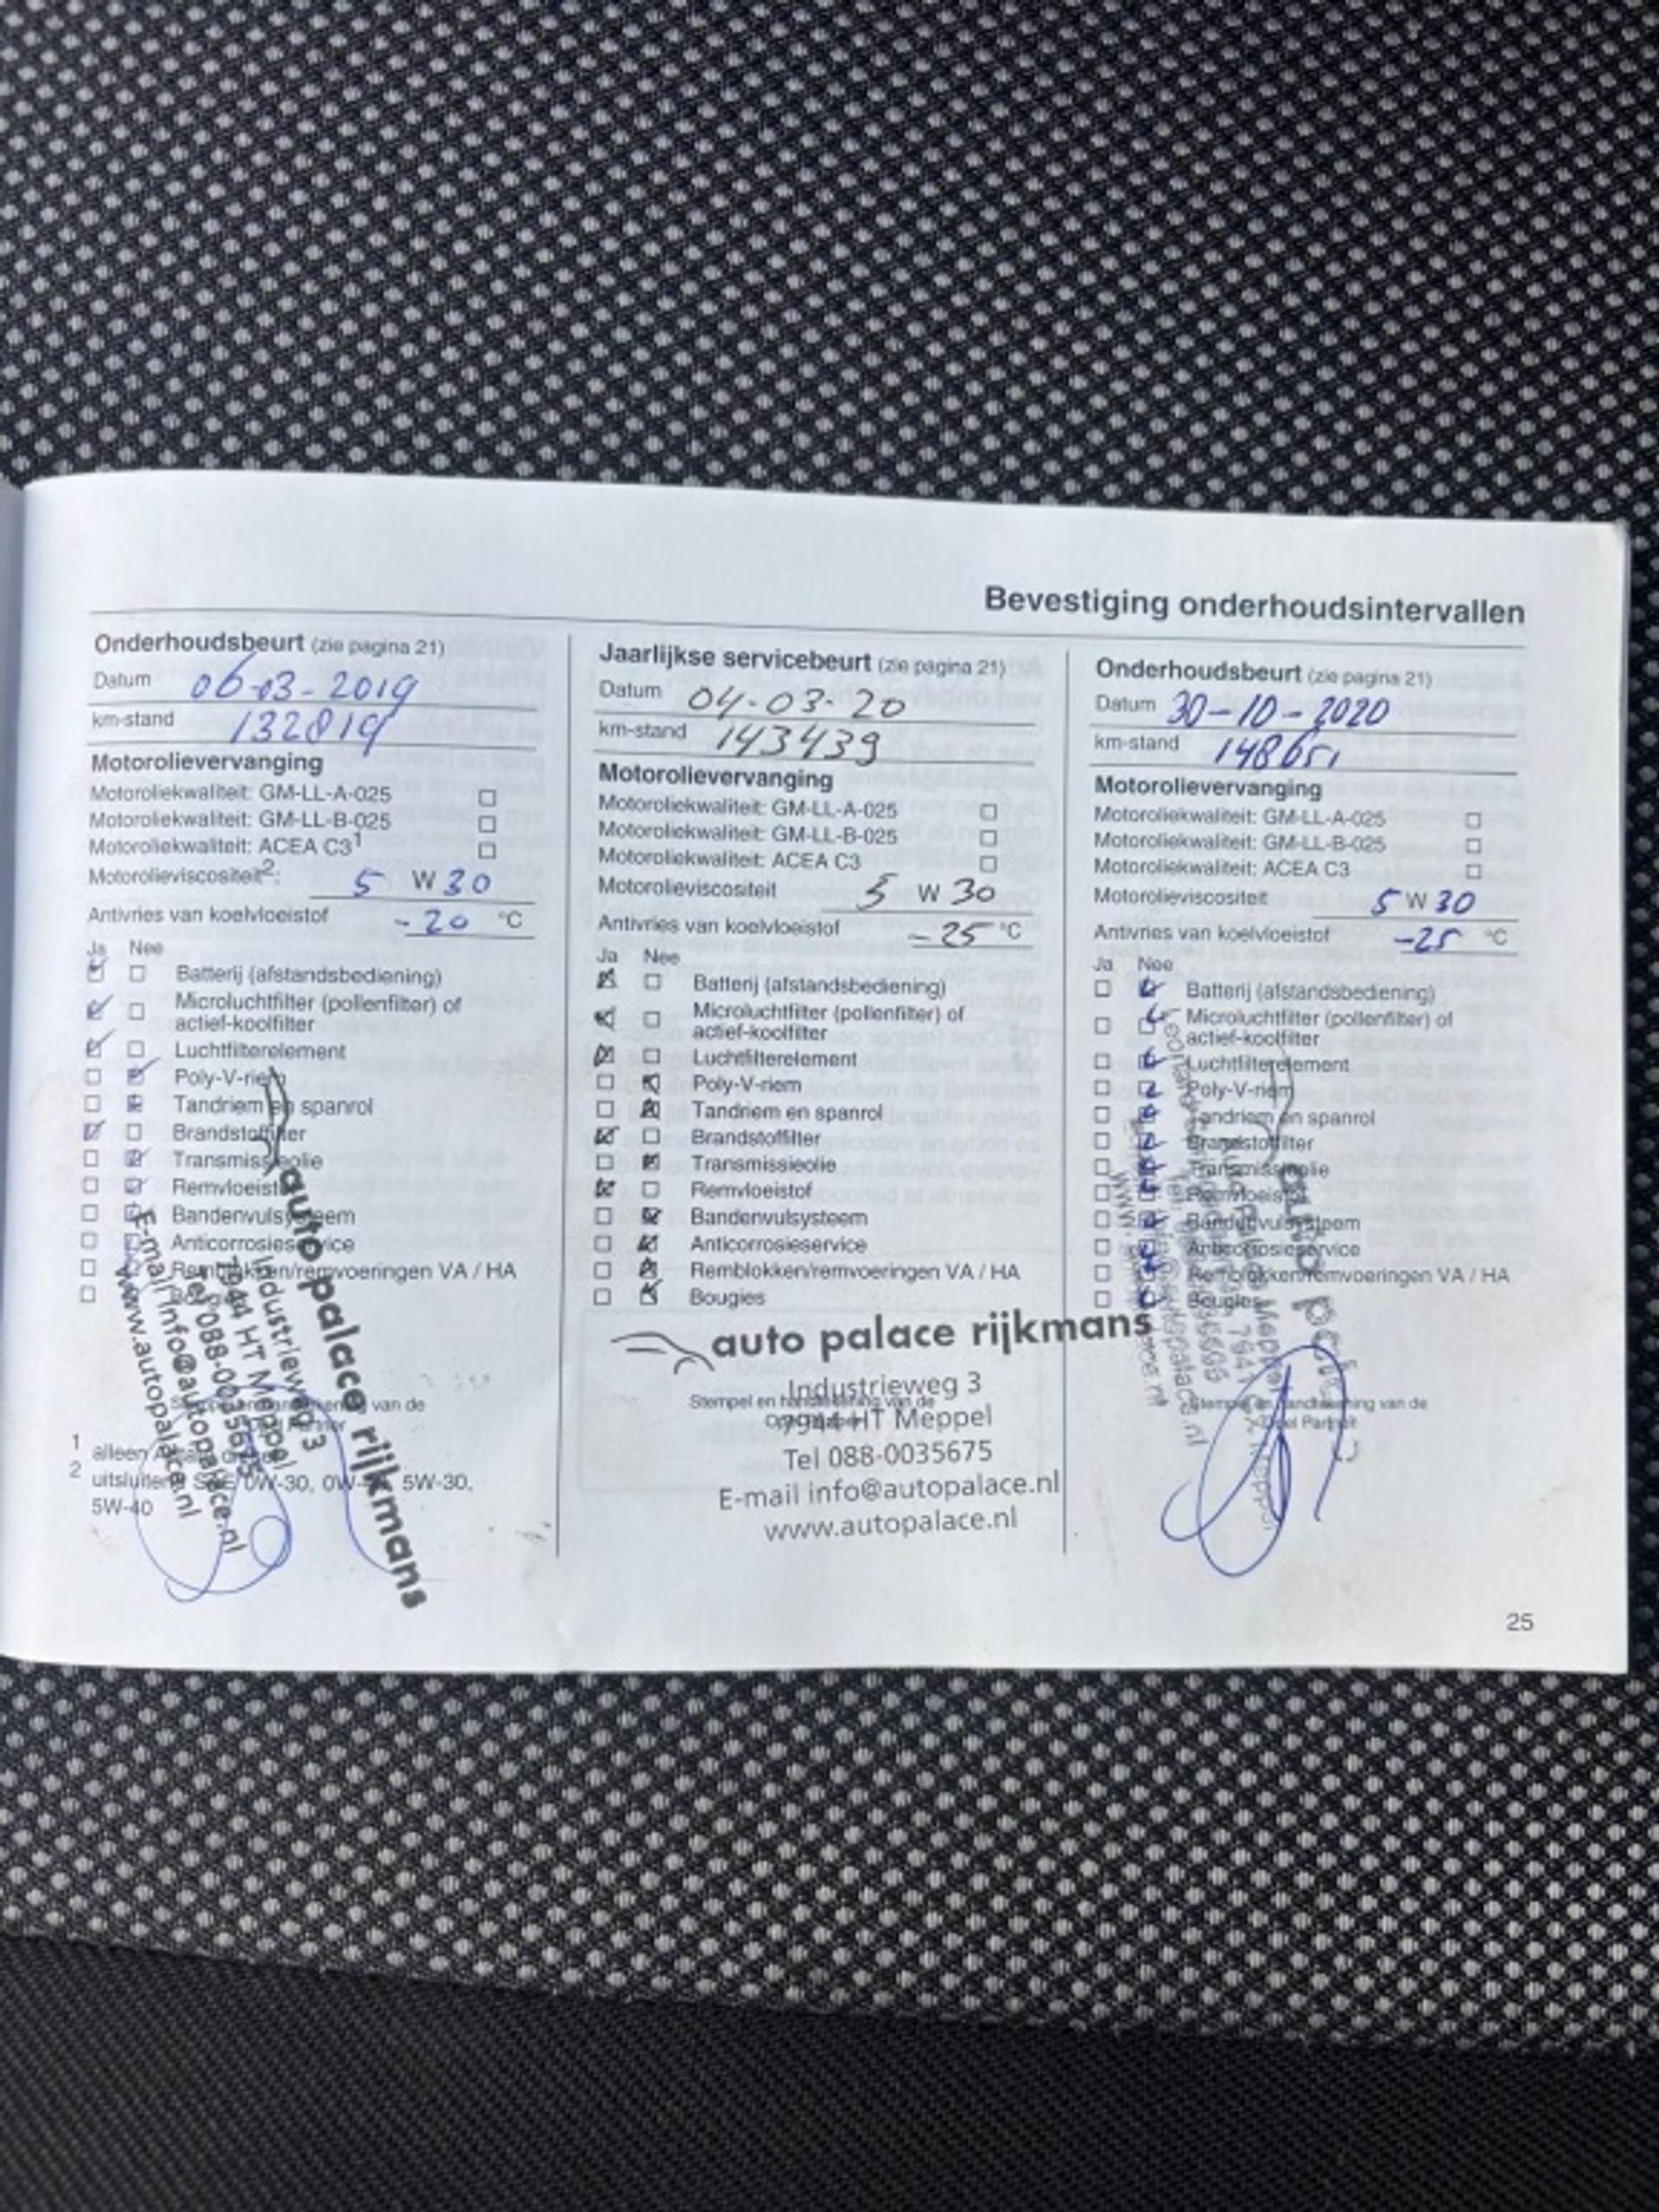 Bevestiging onderhoudsintervallen
Onderhoudsbeurt (zie pagina 21)
Datum 06-03-2019
km-stand 132819
Motorolievervanging
Motoroliekwaliteit: GM-LL-A-025
Motoroliekwaliteit: GM-LL-B-025
Motoroliekwaliteit: ACEA C3¹
Motorolieviscositeit²: 5 W 30
Antivries van koelvloeistof -20 °C
Ja Nee
Batterij (afstandsbediening)
Microluchtfilter (pollenfilter) of
actief-koolfilter
Luchtfilterelement
Poly-V-riem
Tandriem en spanrol
Brandstoffilter
Transmissieolie
Remvloeistof
Bandenvulsysteem
Anticorrosieservice
Remblokken/remvoeringen VA / HA
Bougies
auto palace rijkmans
Industrieweg 3
7944 HT Meppel
Tel 088-0035675
E-mail info@autopalace.nl
www.autopalace.nl
van de
Partner
1 alleen
2 uitsluitend SAE 0W-30, 5W-30,
5W-40
Jaarlijkse servicebeurt (zie pagina 21)
Datum 04-03-20
km-stand 143439
Motorolievervanging
Motoroliekwaliteit: GM-LL-A-025
Motoroliekwaliteit: GM-LL-B-025
Motoroliekwaliteit: ACEA C3
Motorolieviscositeit 5 W 30
Antivries van koelvloeistof -25 °C
Ja Nee
Batterij (afstandsbediening)
Microluchtfilter (pollenfilter) of
actief-koolfilter
Luchtfilterelement
Poly-V-riem
Tandriem en spanrol
Brandstoffilter
Transmissieolie
Remvloeistof
Bandenvulsysteem
Anticorrosieservice
Remblokken/remvoeringen VA / HA
Bougies
auto palace rijkmans
Industrieweg 3
Stempel en handtekening van de
7944 HT Meppel
Tel 088-0035675
E-mail info@autopalace.nl
www.autopalace.nl
Onderhoudsbeurt (zie pagina 21)
Datum 30-10-2020
km-stand 148651
Motorolievervanging
Motoroliekwaliteit: GM-LL-A-025
Motoroliekwaliteit: GM-LL-B-025
Motoroliekwaliteit: ACEA C3
Motorolieviscositeit 5 W 30
Antivries van koelvloeistof -25 °C
Ja Nee
Batterij (afstandsbediening)
Microluchtfilter (pollenfilter) of
actief-koolfilter
Luchtfilterelement
Poly-V-riem
Tandriem en spanrol
Brandstoffilter
Transmissieolie
Remvloeistof
Bandenvulsysteem
Anticorrosieservice
Remblokken/remvoeringen VA / HA
Bougies
Stempel en handtekening van de
Opel Partner
25